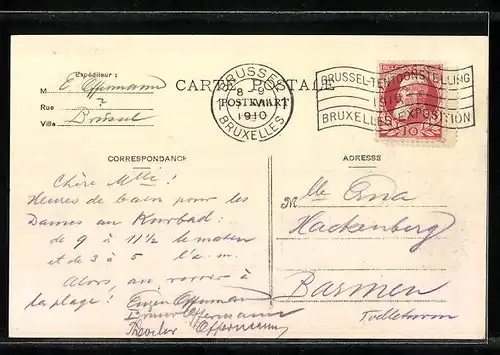 Expéditeur :
M E. Offermann
Rue ?
Ville Brüssel
CARTE POSTALE
POSTKAART
BRUSSEL
8-9
1910
BRUXELLES
BRUSSEL-TENTOONSTELLING
1910
BRUXELLES-EXPOSITION
10
CORRESPONDANCE
ADRESSE
Chère Mlle!
Heures de bain pour les
Dames au Kurbad:
de 9 à 11½ le matin
et de 3 à 5 l'a.m.
Alors, au revoir à
la plage! Eugen Offermann
Offermann
Theodor Offermann
Mlle Erna
Hackenberg
Barmen